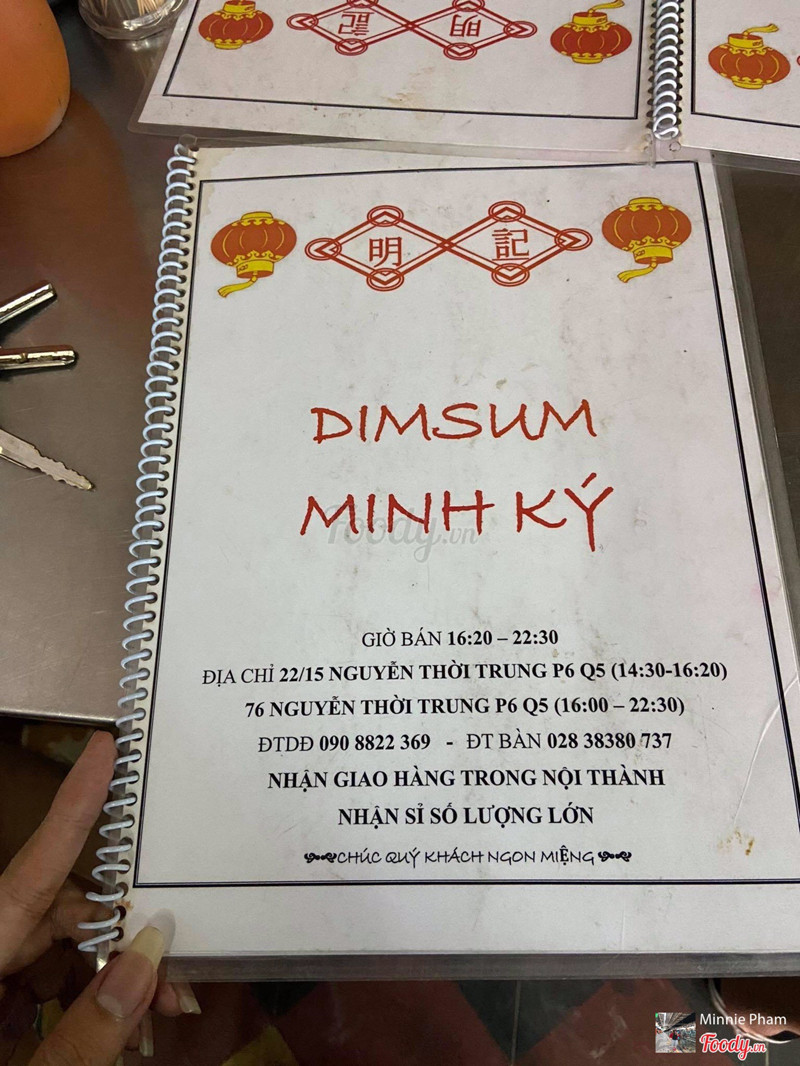 記 明
明 記
DIMSUM
MINH KÝ
Foody.vn
GIỜ BÁN 16:20 – 22:30
ĐỊA CHỈ 22/15 NGUYỄN THỜI TRUNG P6 Q5 (14:30-16:20)
76 NGUYỄN THỜI TRUNG P6 Q5 (16:00 – 22:30)
ĐTDĐ 090 8822 369 - ĐT BÀN 028 38380 737
NHẬN GIAO HÀNG TRONG NỘI THÀNH
NHẬN SỈ SỐ LƯỢNG LỚN
CHÚC QUÝ KHÁCH NGON MIỆNG
Minnie Pham
Foody.vn